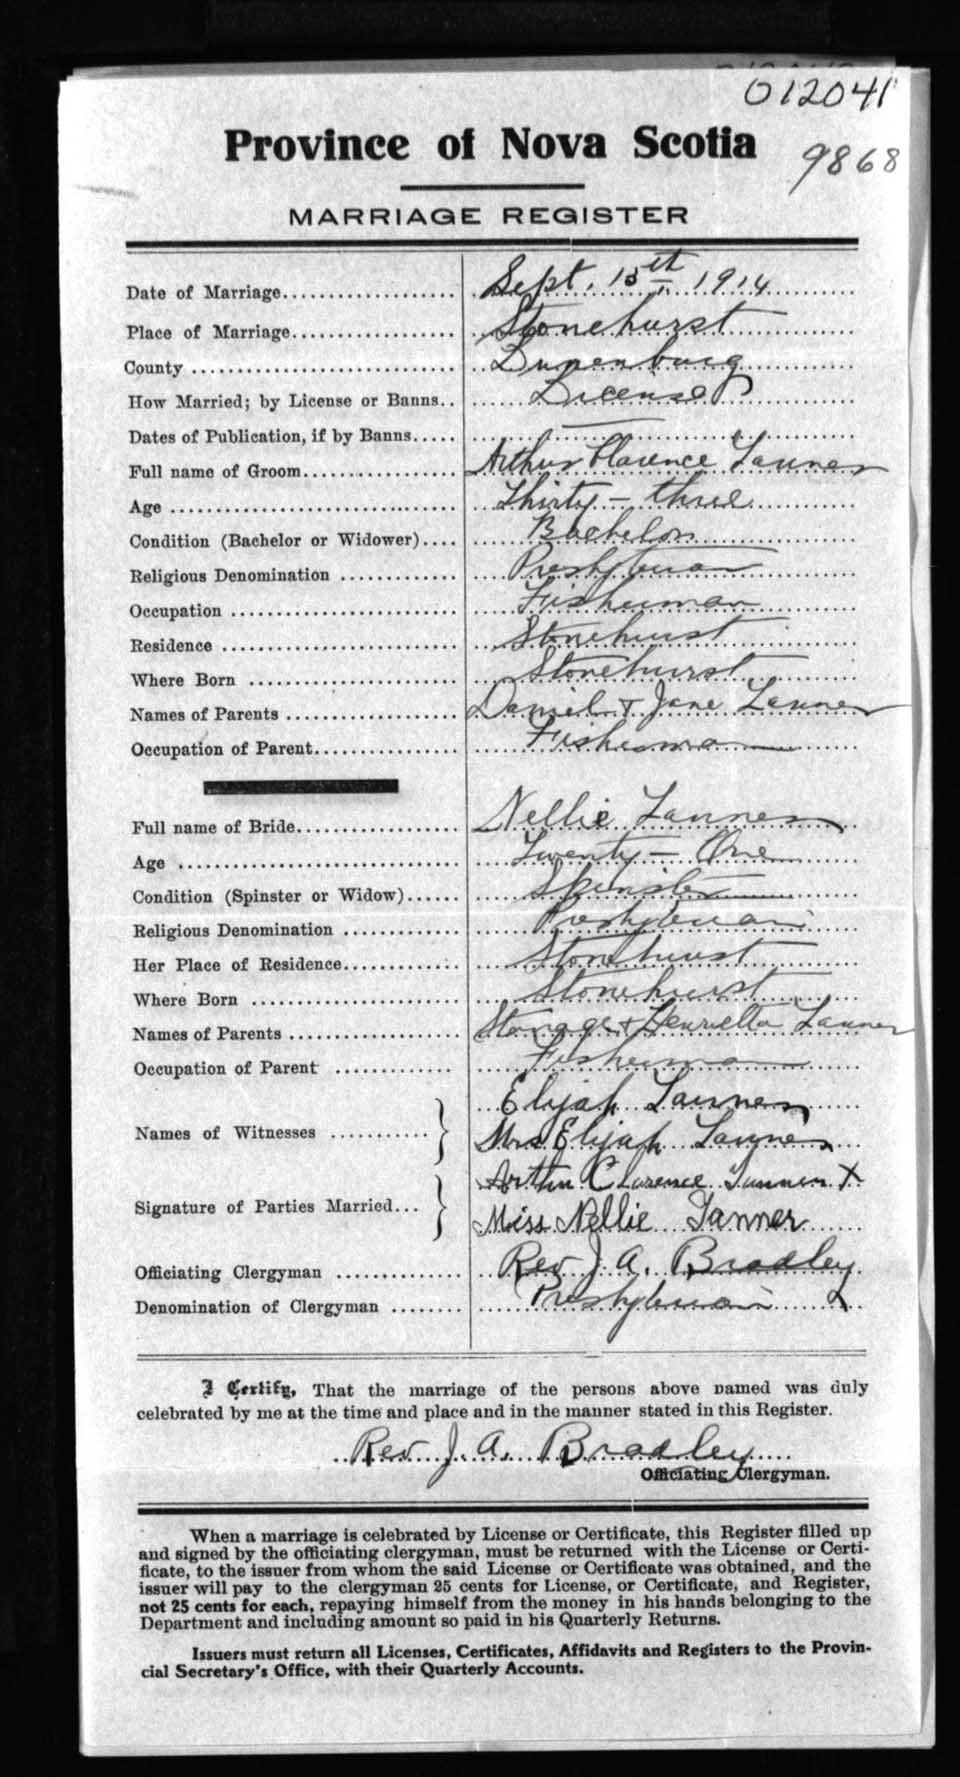 012041
Province of Nova Scotia
9868
MARRIAGE REGISTER
Date of Marriage Sept. 15th 1914
Place of Marriage Stonehurst
County Lunenburg
How Married; by License or Banns License
Dates of Publication, if by Banns —
Full name of Groom Arthur Clarence Tanner
Age Thirty-three
Condition (Bachelor or Widower) Bachelor
Religious Denomination Presbyterian
Occupation Fisherman
Residence Stonehurst
Where Born Stonehurst
Names of Parents Daniel & Jane Tanner
Occupation of Parent Fisherman
Full name of Bride Nellie Tanner
Age Twenty-One
Condition (Spinster or Widow) Spinster
Religious Denomination Presbyterian
Her Place of Residence Stonehurst
Where Born Stonehurst
Names of Parents & Henrietta Tanner
Occupation of Parent Fisherman
Names of Witnesses Elijah Tanner
Mrs Elijah Tanner
Signature of Parties Married Arthur Clarence Tanner X
Miss Nellie Tanner
Officiating Clergyman Rev J. A. Bradley
Denomination of Clergyman Presbyterian
I Certify, That the marriage of the persons above named was duly
celebrated by me at the time and place and in the manner stated in this Register.
Rev J. A. Bradley
Officiating Clergyman.
When a marriage is celebrated by License or Certificate, this Register filled up
and signed by the officiating clergyman, must be returned with the License or Certi-
ficate, to the issuer from whom the said License or Certificate was obtained, and the
issuer will pay to the clergyman 25 cents for License, or Certificate, and Register,
not 25 cents for each, repaying himself from the money in his hands belonging to the
Department and including amount so paid in his Quarterly Returns.
Issuers must return all Licenses, Certificates, Affidavits and Registers to the Provin-
cial Secretary's Office, with their Quarterly Accounts.